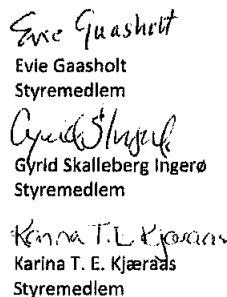 Evie Gaasholt
Evie Gaasholt
Styremedlem
Gyrid S Ingerø
Gyrid Skalleberg Ingerø
Styremedlem
Karina T. E. Kjæraas
Karina T. E. Kjæraas
Styremedlem